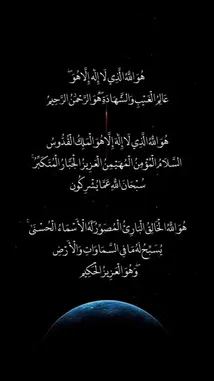 هُوَ اللَّهُ الَّذِي لَا إِلَٰهَ إِلَّا هُوَ
عَالِمُ الْغَيْبِ وَالشَّهَادَةِ هُوَ الرَّحْمَٰنُ الرَّحِيمُ
هُوَ اللَّهُ الَّذِي لَا إِلَٰهَ إِلَّا هُوَ الْمَلِكُ الْقُدُّوسُ
السَّلَامُ الْمُؤْمِنُ الْمُهَيْمِنُ الْعَزِيزُ الْجَبَّارُ الْمُتَكَبِّرُ
سُبْحَانَ اللَّهِ عَمَّا يُشْرِكُونَ
هُوَ اللَّهُ الْخَالِقُ الْبَارِئُ الْمُصَوِّرُ لَهُ الْأَسْمَاءُ الْحُسْنَىٰ
يُسَبِّحُ لَهُ مَا فِي السَّمَاوَاتِ وَالْأَرْضِ
وَهُوَ الْعَزِيزُ الْحَكِيمُ